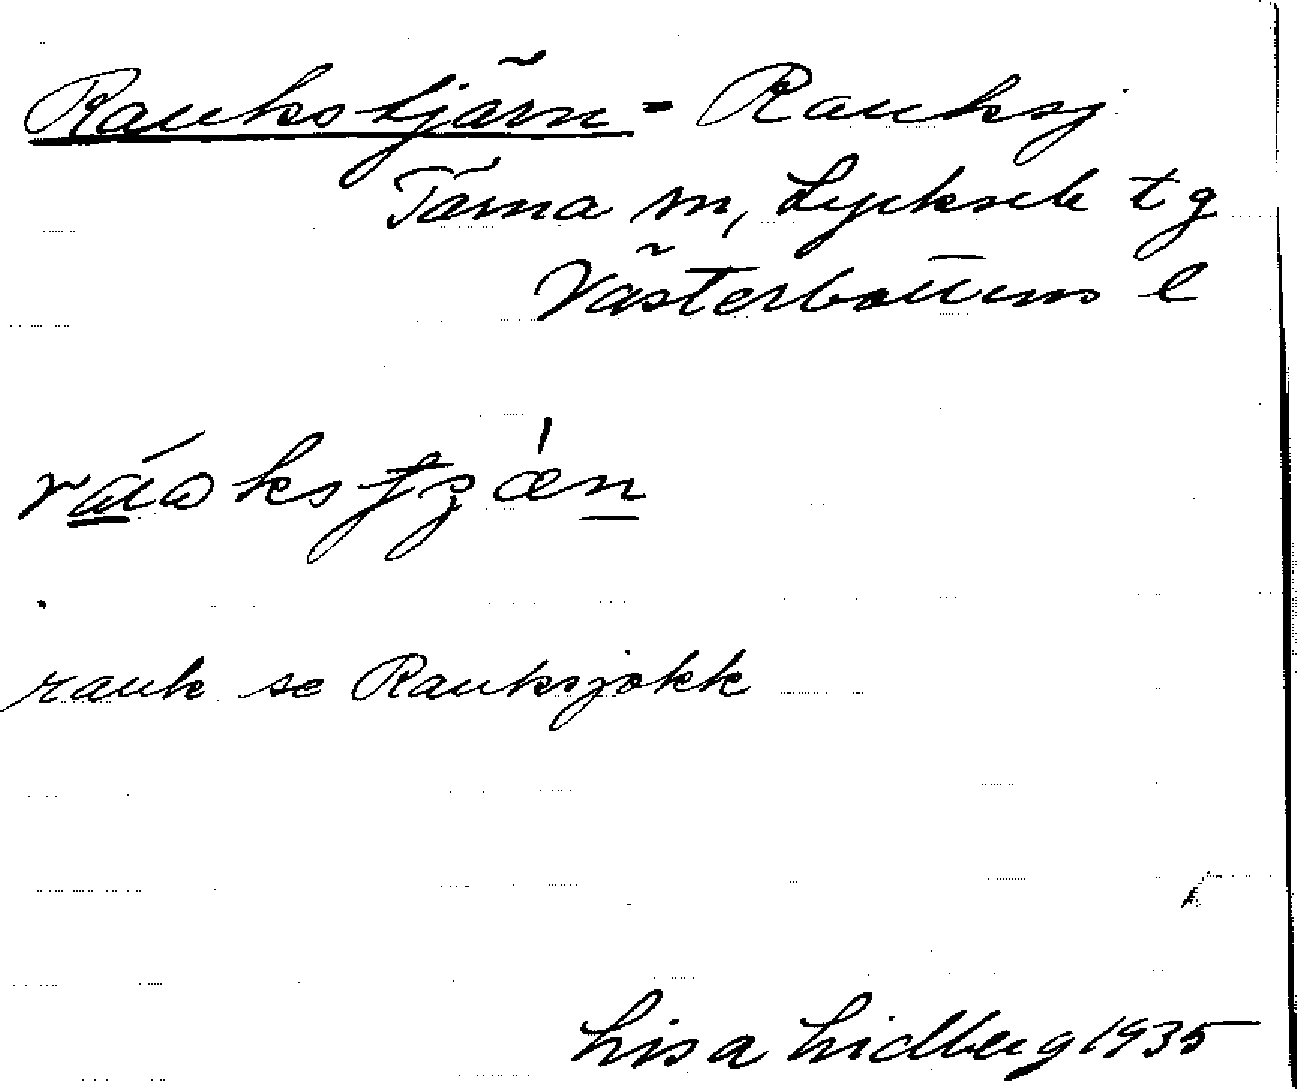 Rauksstjärn - Rauksj
Tärna sn, Lycksele tg
Västerbottens l
rauk se Rauksjokk
Lisa Lidberg 1935